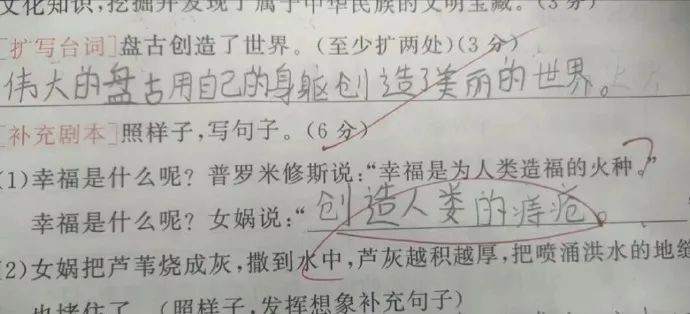 文化知识,挖掘并发现了属于中华民族的文明宝藏。(3分)
[扩写台词]盘古创造了世界。(至少扩两处)(3分)
伟大的盘古用自己的身躯创造了美丽的世界。
[补充剧本]照样子,写句子。(6分)
(1)幸福是什么呢?普罗米修斯说:“幸福是为人类造福的火种。”
幸福是什么呢?女娲说:“创造人类的痔疮。
(2)女娲把芦苇烧成灰,撒到水中,芦灰越积越厚,把喷涌洪水的地缝
也堵住了。(照样子,发挥想象补充句子)